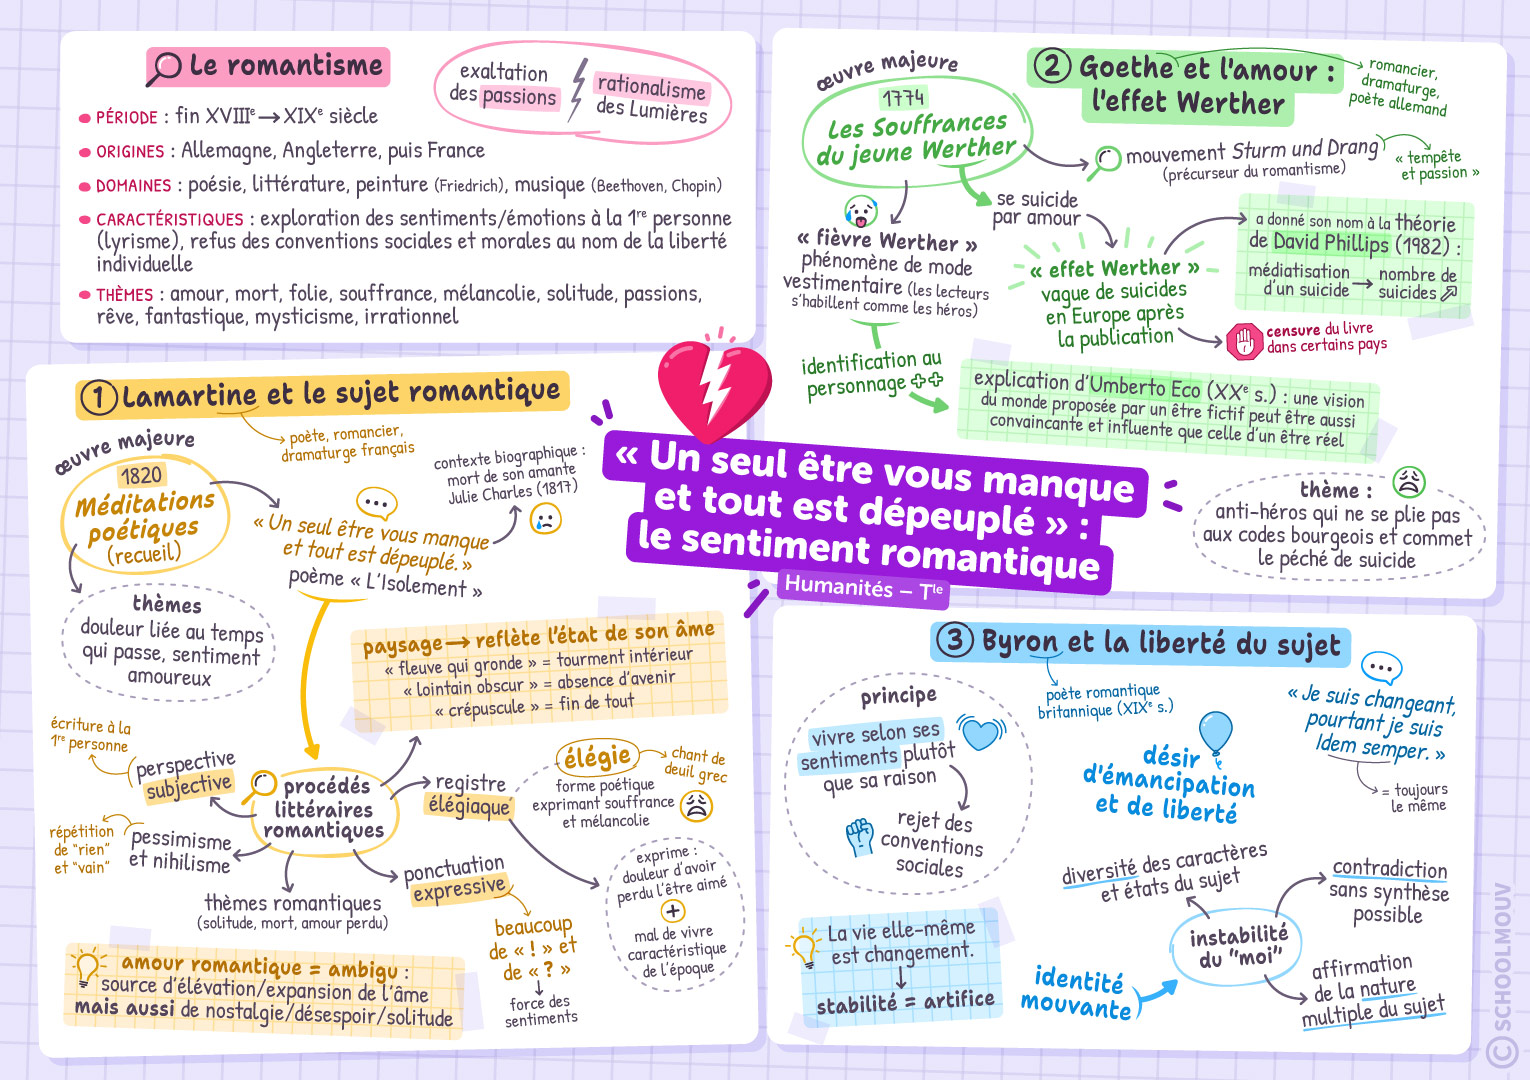 Le romantisme
exaltation
des passions
rationalisme
des Lumières
PÉRIODE : fin XVIIIe → XIXe siècle
ORIGINES : Allemagne, Angleterre, puis France
DOMAINES : poésie, littérature, peinture (Friedrich), musique (Beethoven, Chopin)
CARACTÉRISTIQUES : exploration des sentiments/émotions à la 1re personne
(lyrisme), refus des conventions sociales et morales au nom de la liberté
individuelle
THÈMES : amour, mort, folie, souffrance, mélancolie, solitude, passions,
rêve, fantastique, mysticisme, irrationnel
« Un seul être vous manque
et tout est dépeuplé » :
le sentiment romantique
Humanités – Tle
1 Lamartine et le sujet romantique
poète, romancier,
dramaturge français
œuvre majeure
1820
Méditations
poétiques
(recueil)
thèmes
douleur liée au temps
qui passe, sentiment
amoureux
« Un seul être vous manque
et tout est dépeuplé. »
poème « L'Isolement »
contexte biographique :
mort de son amante
Julie Charles (1817)
paysage → reflète l'état de son âme
« fleuve qui gronde » = tourment intérieur
« lointain obscur » = absence d'avenir
« crépuscule » = fin de tout
procédés
littéraires
romantiques
écriture à la
1re personne
perspective
subjective
répétition
de "rien"
et "vain"
pessimisme
et nihilisme
thèmes romantiques
(solitude, mort, amour perdu)
ponctuation
expressive
beaucoup
de « ! » et
de « ? »
force des
sentiments
registre
élégiaque
élégie
chant de
deuil grec
forme poétique
exprimant souffrance
et mélancolie
exprime :
douleur d'avoir
perdu l'être aimé
+
mal de vivre
caractéristique
de l'époque
amour romantique = ambigu :
source d'élévation/expansion de l'âme
mais aussi de nostalgie/désespoir/solitude
2 Goethe et l'amour :
l'effet Werther
romancier,
dramaturge,
poète allemand
œuvre majeure
1774
Les Souffrances
du jeune Werther
mouvement Sturm und Drang
(précurseur du romantisme)
« tempête
et passion »
se suicide
par amour
« fièvre Werther »
phénomène de mode
vestimentaire (les lecteurs
s'habillent comme les héros)
identification au
personnage ++
« effet Werther »
vague de suicides
en Europe après
la publication
a donné son nom à la théorie
de David Phillips (1982) :
médiatisation
d'un suicide → nombre de
suicides ↗
censure du livre
dans certains pays
explication d'Umberto Eco (XXe s.) : une vision
du monde proposée par un être fictif peut être aussi
convaincante et influente que celle d'un être réel
thème :
anti-héros qui ne se plie pas
aux codes bourgeois et commet
le péché de suicide
3 Byron et la liberté du sujet
poète romantique
britannique (XIXe s.)
principe
vivre selon ses
sentiments plutôt
que sa raison
rejet des
conventions
sociales
désir
d'émancipation
et de liberté
« Je suis changeant,
pourtant je suis
Idem semper. »
= toujours
le même
La vie elle-même
est changement.
↓
stabilité = artifice
identité
mouvante
instabilité
du "moi"
diversité des caractères
et états du sujet
contradiction
sans synthèse
possible
affirmation
de la nature
multiple du sujet
© SCHOOLMOUV